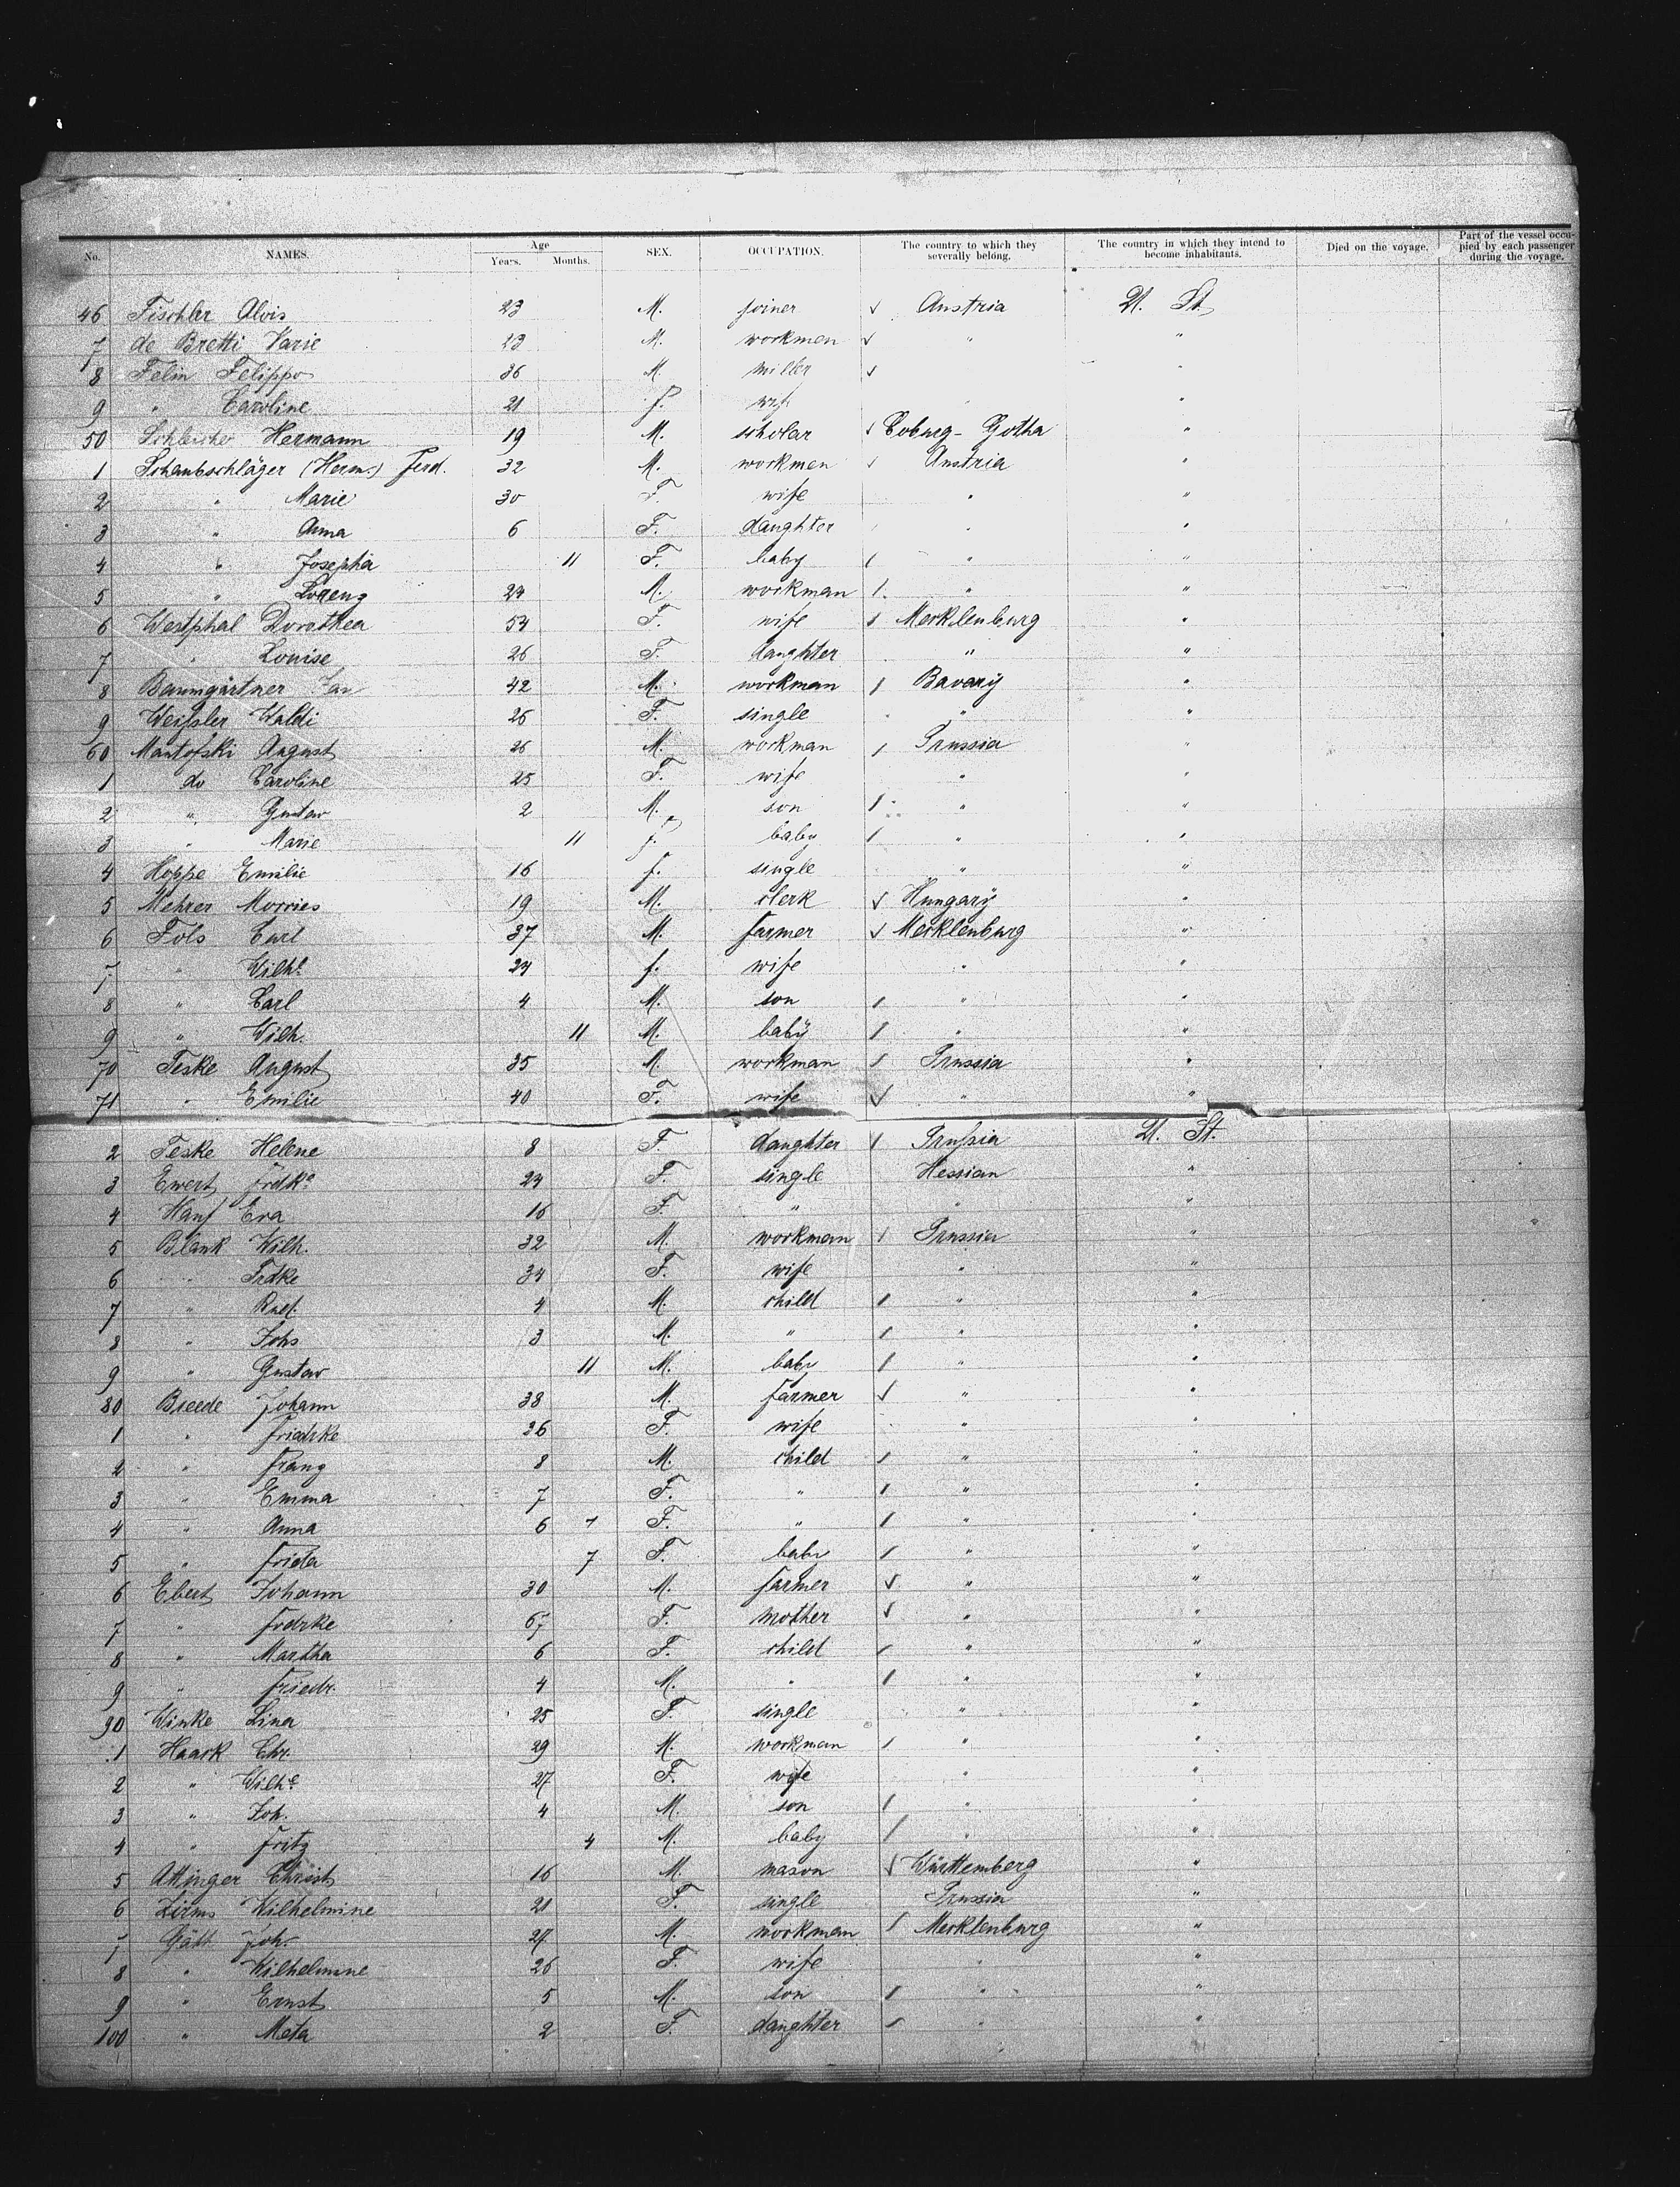 No. NAMES. Age Years. Months. SEX. OCCUPATION. The country to which they severally belong. The country in which they intend to become inhabitants. Died on the voyage. Part of the vessel occupied by each passenger during the voyage.
46 Tischler Alois 23 M. joiner √ Austria U. St.
7 de Bretti 23 M. workmen √ " "
8 Felin Felippo 36 M. miller √ "
9 " Caroline 21 f. wif "
50 Hermann 19 M. scholar √ Coburg-Gotha "
1 Schaubschläger (Herm.) Ferd. 32 M. workmen √ Austria "
2 " Marie 30 F. wife " "
3 " Anna 6 F. daughter " "
4 " Josepha 11 F. baby / " "
5 " Lorenz 24 M. workman / " "
6 Westphal Dorothea 54 F. wife / Mecklenburg "
7 " Louise 26 F. daughter " "
8 Baumgärtner 42 M. workman / Bavary "
9 Weissler Waldi 26 F. single " "
60 Mantofski August 26 M. workman / Prussia "
1 do Caroline 25 F. wife " "
2 " Gustav 2 M. son / " "
3 " Marie 11 f. baby / " "
4 Hoppe Emilie 16 f. single " "
5 Mehrer Morries 19 M. clerk √ Hungary "
6 Fols Carl 37 M. farmer √ Mecklenburg "
7 " Wilhe 24 f. wife " "
8 " Carl 4 M. son / " "
9 " Wilh. 11 M. baby / " "
70 Teske August 35 M. workman / Prussia "
71 " Emilie 40 F. wife √ " "
2 Teske Helene 8 F. daughter / Prussia U. St.
3 Ewert Frdke 24 F. single Hessian "
4 Hanf Eva 16 F. " " "
5 Blank Wilh. 32 M. workman / Prussia "
6 " Frdke 34 F. wife " "
7 " Rud. 4 M. child / " "
8 " Johs 3 M. " / " "
9 " Gustav 11 M. baby / " "
80 Breede Johann 38 M. farmer √ " "
1 " Friedrke 36 F. wife " "
2 " Franz 8 M. child / " "
3 " Emma 7 F. " / " "
4 " Anna 6 F. " / " "
5 " Frieda 7 F. baby / " "
6 Ebert Johann 30 M. farmer √ " "
7 " Frdrke 67 F. mother √ " "
8 " Martha 6 F. child / " "
9 " Friedr. 4 M. " / " "
90 Winke Lina 25 F. single " "
1 Haark Chr. 29 M. workman / " "
2 " Wilhe 27 F. wife " "
3 " Joh. 4 M. son / " "
4 " Fritz 4 M. baby / " "
5 Attinger Christ. 16 M. mason √ Württemberg "
6 Zirms Wilhelmine 21 F. single Prussia "
7 Gätt Joh. 27 M. workman / Mecklenburg "
8 " Wilhelmine 26 F. wife " "
9 " Ernst 5 M. son / " "
100 " Meta 2 F. daughter / " "